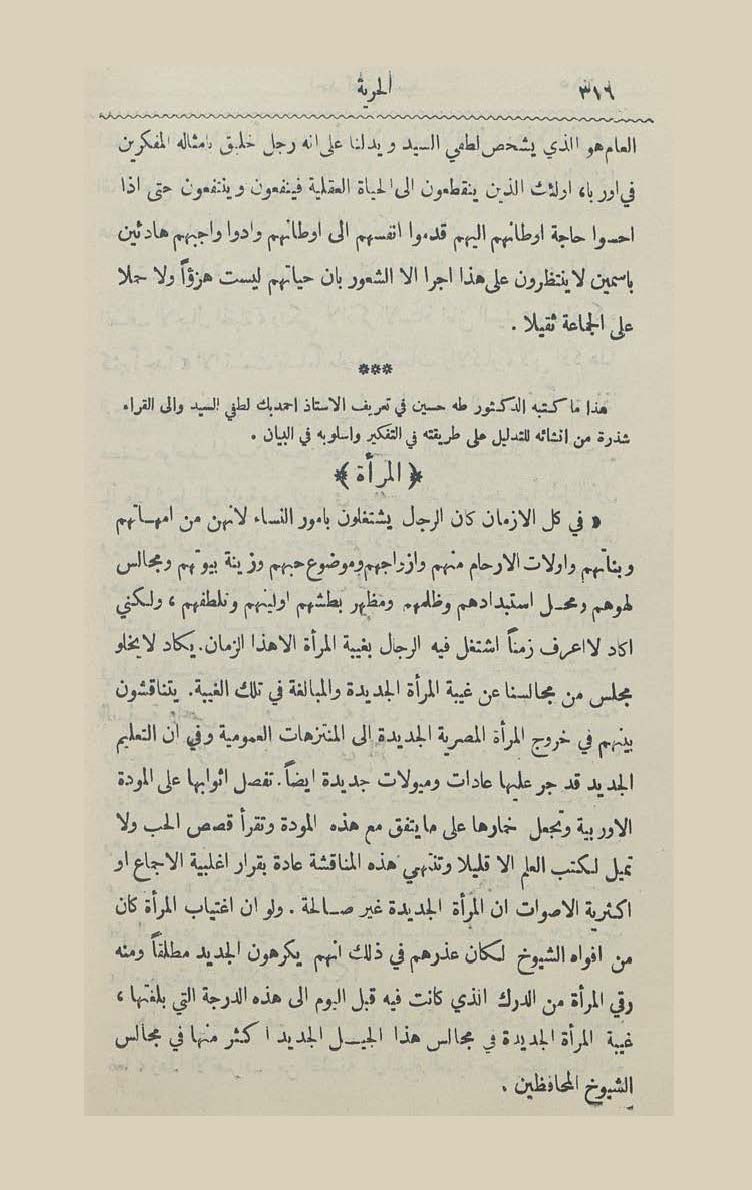 ٣١٦
الحرية
العام هو الذي يشخص لطفي السيد ويدلنا على انه رجل خليق بامثاله المفكرين
في اوربا، اولئك الذين ينقطعون الى الحياة العقلية فينفعون وينتفعون حتى اذا
احسوا حاجة اوطانهم اليهم قدموا انفسهم الى اوطانهم وادوا واجبهم هادئين
باسمين لا ينتظرون على هذا اجرا الا الشعور بان حياتهم ليست هزؤاً ولا حملا
على الجماعة ثقيلا .
***
هذا ما كتبه الدكتور طه حسين في تعريف الاستاذ احمد بك لطفي السيد والى القراء
شذرة من انشائه للتدليل على طريقته في التفكير واسلوبه في البيان .
﴿ المرأة ﴾
« في كل الازمان كان الرجال يشتغلون بامور النساء لانهن من امهاتهم
وبناتهم واولات الارحام منهم وازواجهم وموضوع حبهم وزينة بيوتهم ومجالس
لهوهم ومحل استبدادهم وظلمهم ومظهر بطشهم اولينهم وتلطفهم ، ولكنني
اكاد لا اعرف زمناً اشتغل فيه الرجال بغيبة المرأة الا هذا الزمان. يكاد لا يخلو
مجلس من مجالسنا عن غيبة المرأة الجديدة والمبالغة في تلك الغيبة. يتناقشون
بينهم في خروج المرأة المصرية الجديدة الى المنتزهات العمومية وفي ان التعليم
الجديد قد جر عليها عادات وميولات جديدة ايضاً. تفصل اثوابها على المودة
الاوربية وتجعل خمارها على ما يتفق مع هذه المودة وتقرأ قصص الحب ولا
تميل لكتب العلم الا قليلا وتنتهي هذه المناقشة عادة بقرار اغلبية الاجماع او
اكثرية الاصوات ان المرأة الجديدة غير صالحة . ولو ان اغتياب المرأة كان
من افواه الشيوخ لكان عذرهم في ذلك انهم يكرهون الجديد مطلقاً ومنه
رقي المرأة من الدرك الذي كانت فيه قبل اليوم الى هذه الدرجة التي بلغتها ،
غيبة المرأة الجديدة في مجالس هذا الجيل الجديد اكثر منها في مجالس
الشيوخ المحافظين .